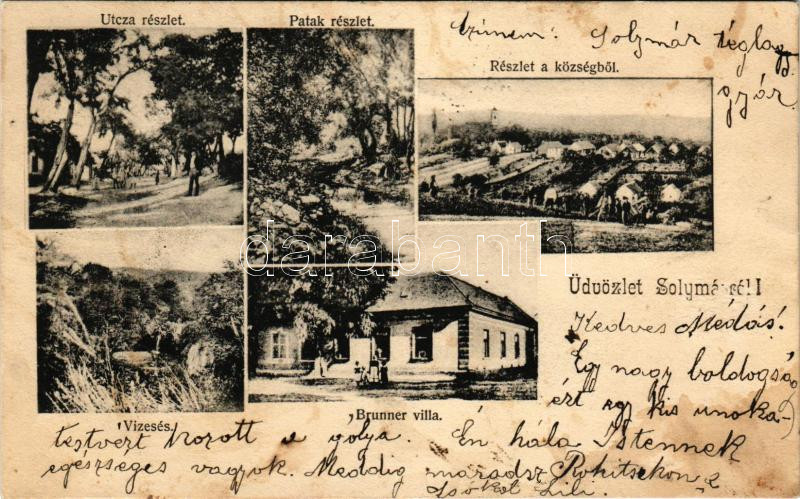 Utcza részlet.
Patak részlet.
Czimem: Solymár tégla
gyár
Részlet a községből.
darabanth
Üdvözlet Solymárról!
Kedves
Egy nagy boldogság
ért egy kis unoka-
Vizesés.
Brunner villa.
testvért hozott a gólya. Én hála Istennek
egészséges vagyok. Meddig maradsz Rohitschon?
Csókol Lili.